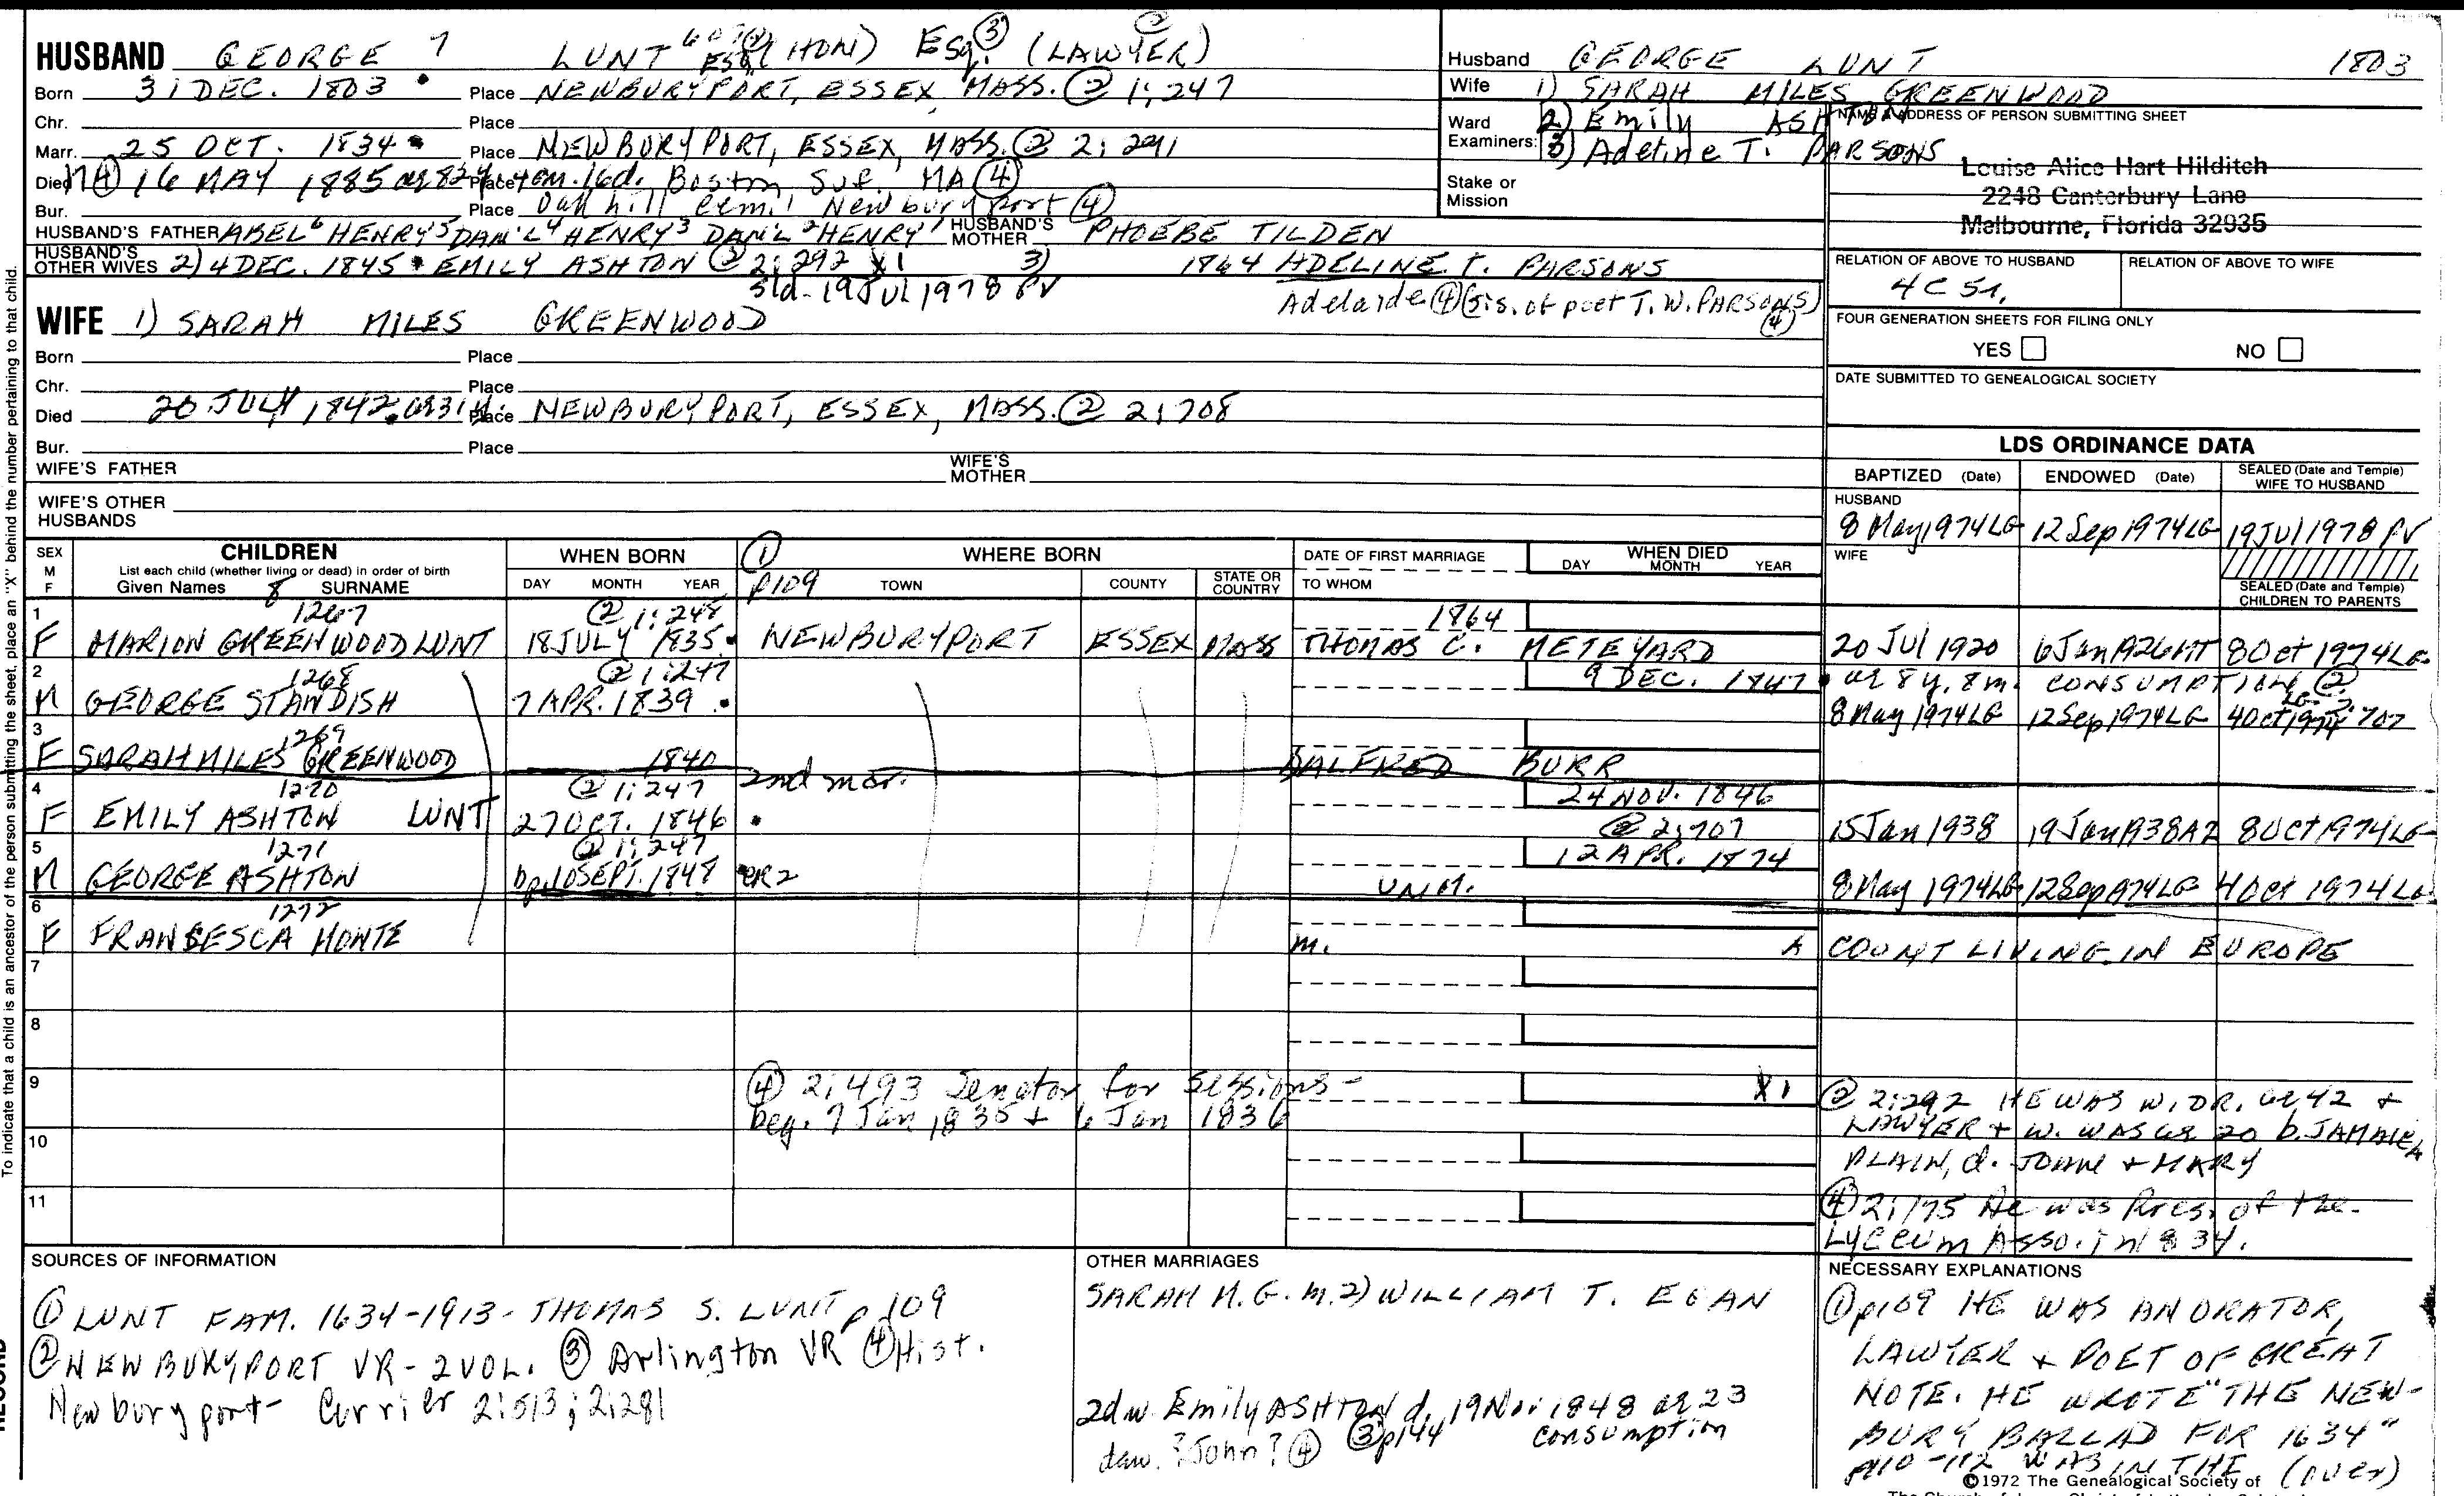 HUSBAND GEORGE 7 LUNT ESQ (HON) Esq. ③ (LAWYER)
Born 31 DEC. 1803 Place NEWBURYPORT, ESSEX, MASS. ② 1:247
Chr. Place
Marr. 25 OCT. 1834 Place NEWBURYPORT, ESSEX, MASS. ② 2:291
Died ④ 16 MAY 1885 ae 82y. 4m. 16d. Place Boston, Suf. MA ④
Bur. Place Oak hill Cem. Newburyport ④
HUSBAND'S FATHER ABEL 6 HENRY 5 DAN'L 4 HENRY 3 DAN'L 2 HENRY 1 HUSBAND'S MOTHER PHOEBE TILDEN
HUSBAND'S OTHER WIVES 2) 4 DEC. 1845 EMILY ASHTON ② 2:292 X1 3) 1864 ADELINE T. PARSONS
sld - 19 Jul 1978 PV
Adelaide ④ (sis. of poet T. W. PARSONS) ④
WIFE 1) SARAH MILES GREENWOOD
Born Place
Chr. Place
Died 20 JULY 1842 ae 31 Place NEWBURYPORT, ESSEX, MASS. ② 2:708
Bur. Place
WIFE'S FATHER WIFE'S MOTHER
WIFE'S OTHER HUSBANDS
Husband GEORGE LUNT 1803
Wife 1) SARAH MILES GREENWOOD
Ward Examiners: 2) Emily ASHTON
3) Adeline T. PARSONS
Stake or Mission
NAME & ADDRESS OF PERSON SUBMITTING SHEET
Louise Alice Hart Hilditch
2248 Canterbury Lane
Melbourne, Florida 32935
RELATION OF ABOVE TO HUSBAND RELATION OF ABOVE TO WIFE
4C 5r.
FOUR GENERATION SHEETS FOR FILING ONLY
YES NO
DATE SUBMITTED TO GENEALOGICAL SOCIETY
LDS ORDINANCE DATA
BAPTIZED (Date) ENDOWED (Date) SEALED (Date and Temple) WIFE TO HUSBAND
HUSBAND
8 May 1974 LG 12 Sep 1974 LG 19 Jul 1978 PV
WIFE
SEALED (Date and Temple) CHILDREN TO PARENTS
To indicate that a child is an ancestor of the person submitting the sheet, place an "X" behind the number pertaining to that child.
SEX M F
CHILDREN
List each child (whether living or dead) in order of birth
Given Names 8 SURNAME
WHEN BORN
DAY MONTH YEAR
① p109 WHERE BORN
TOWN COUNTY STATE OR COUNTRY
DATE OF FIRST MARRIAGE
TO WHOM
WHEN DIED
DAY MONTH YEAR
1 1267 ② 1:248 1864
F MARION GREENWOOD LUNT 18 JULY 1835 NEWBURYPORT ESSEX MASS THOMAS C. METEYARD 20 Jul 1920 6 Jan 1926 MT 8 Oct 1974 LG
2 1268 ② 1:247 9 DEC. 1847 ae 8 y. 8m. CONSUMPTION ②
M GEORGE STANDISH 7 APR. 1839 8 May 1974 LG 12 Sep 1974 LG 4 Oct 1974 LG 2:707
3 1269
F SARAH MILES GREENWOOD 1840 ALFRED BURR
4 1270 ② 1:247 2nd mar. 24 NOV. 1846
F EMILY ASHTON LUNT 27 OCT. 1846 ② 2:707 15 Jan 1938 19 Jan 1938 AZ 8 Oct 1974 LG
5 1271 ② 1:247 12 APR. 1874
M GEORGE ASHTON bp. 10 SEPT. 1848 CR2 UNM. 8 May 1974 LG 12 Sep 1974 LG 4 Oct 1974 LG
6 1272
F FRANCESCA MONTE m. A COUNT LIVING IN EUROPE
7
8
9 ④ 2:493 Senator for sessions - X1
beg. 7 Jan 1835 + 6 Jan 1836
10
11
② 2:292 HE WAS WIDR. ae 42 +
LAWYER + W. WAS ae 20 b. JAMAICA
PLAIN, d. JOHN + MARY
④ 2:175 He was Pres. of the
Lyceum Asso. in 1834.
SOURCES OF INFORMATION
① LUNT FAM. 1634-1913 - THOMAS S. LUNT p 109
② NEWBURYPORT VR - 2 VOL. ③ Arlington VR ④ Hist.
Newburyport - Currier 2:513; 2:281
OTHER MARRIAGES
SARAH M. G. m. 2) WILLIAM T. EGAN
2d w. Emily ASHTON d. 19 Nov 1848 ae 23
③ p144 consumption
dau. ? John ? ④
NECESSARY EXPLANATIONS
① p109 HE WAS AN ORATOR,
LAWYER + POET OF GREAT
NOTE. HE WROTE "THE NEW-
BURY BALLAD FOR 1634"
p110-112 WAS IN THE (over)
©1972 The Genealogical Society of